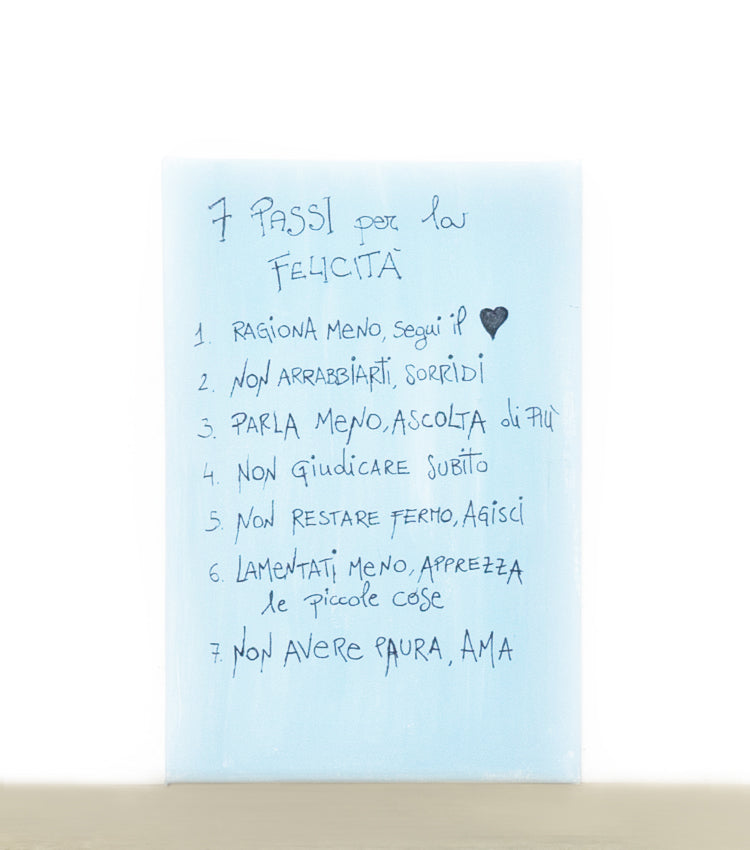 7 PASSI per la
FELICITÀ
1. RAGIONA MENO, segui il ♥
2. NON ARRABBIARTi, SORRIDi
3. PARLA MENO, ASCOLTA di Più
4. NON GiudiCARE SUBiTO
5. NON RESTARE FERMO, AGiSCi
6. LAMENTATi MENO, APPREZZA
le piccole cose
7. NON AVERE PAURA, AMA